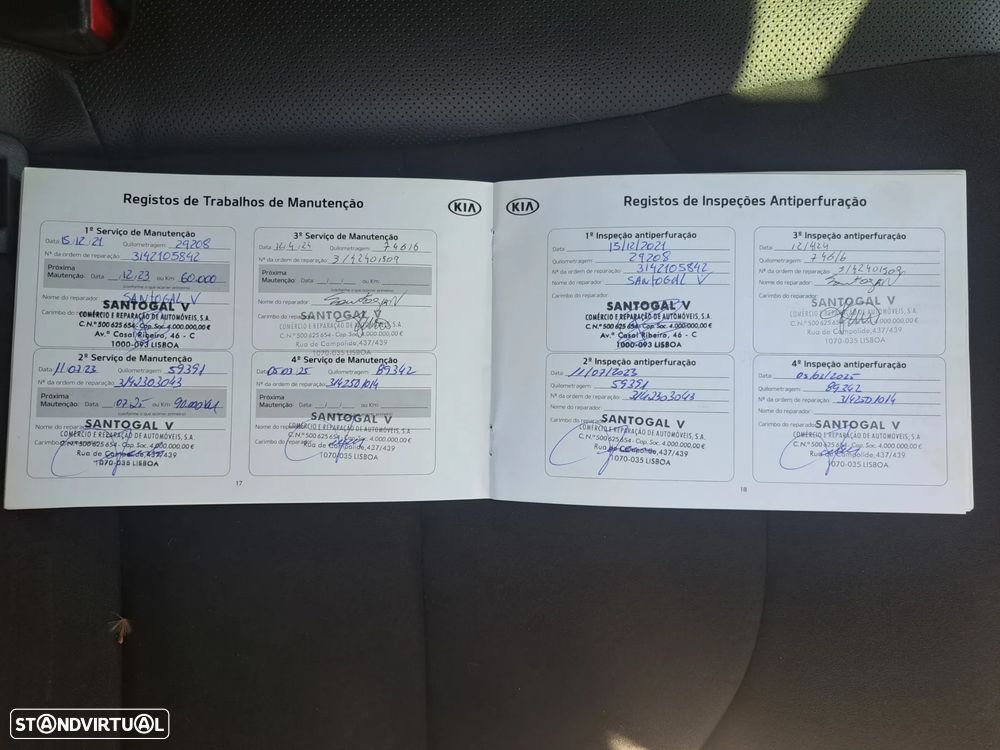 Registos de Trabalhos de Manutenção
KIA
1º Serviço de Manutenção
Data 15/12/21 Quilometragem 29208
Nº da ordem de reparação 3142105842
Próxima
Manutenção: Data 12/23 ou Km 60.000
(conforme o que ocorrer primeiro)
Nome do reparador SANTOGAL V
Carimbo do
SANTOGAL V
COMÉRCIO E REPARAÇÃO DE AUTOMÓVEIS, S.A.
C.N.º 500 625 654 - Cap. Soc. 4.000.000,00 €
Av.ª Casal Ribeiro, 46 - C
1000-093 LISBOA
2º Serviço de Manutenção
Data 11/07/23 Quilometragem 59391
Nº da ordem de reparação 3142303043
Próxima
Manutenção: Data 07/25 ou Km 90.000 km
(conforme o que ocorrer primeiro)
Nome do
Carimbo do
SANTOGAL V
COMÉRCIO E REPARAÇÃO DE AUTOMÓVEIS, S.A.
C.N.º 500 625 654 - Cap. Soc. 4.000.000,00 €
Rua de Campolide, 437/439
1070-035 LISBOA
3º Serviço de Manutenção
Data 12/4/24 Quilometragem 74616
Nº da ordem de reparação 3142401309
Próxima
Manutenção: Data ou Km
(conforme o que ocorrer primeiro)
Nome do reparador Santogal V
Carimbo do
SANTOGAL V
COMÉRCIO E REPARAÇÃO DE AUTOMÓVEIS, S.A.
C.N.º 500 625 654 - Cap. Soc. 4.000.000,00 €
Rua de Campolide, 437/439
1070-035 LISBOA
4º Serviço de Manutenção
Data 05/03/25 Quilometragem 89342
Nº da ordem de reparação 3142501014
Próxima
Manutenção: Data ou Km
(conforme o que ocorrer primeiro)
Nome do
Carimbo do
SANTOGAL V
COMÉRCIO E REPARAÇÃO DE AUTOMÓVEIS, S.A.
C.N.º 500 625 654 - Cap. Soc. 4.000.000,00 €
Rua de Campolide, 437/439
1070-035 LISBOA
17
KIA
Registos de Inspeções Antiperfuração
1ª Inspeção antiperfuração
Data 15/12/2021
Quilometragem 29208
Nº da ordem de reparação 3142105842
Nome do reparador SANTOGAL V
Carimbo do
SANTOGAL V
COMÉRCIO E REPARAÇÃO DE AUTOMÓVEIS, S.A.
C.N.º 500 625 654 - Cap. Soc. 4.000.000,00 €
Av.ª Casal Ribeiro, 46 - C
1000-093 LISBOA
2ª Inspeção antiperfuração
Data 11/07/2023
Quilometragem 59391
Nº da ordem de reparação 3142303043
Nome do reparador
Carimbo do
SANTOGAL V
COMÉRCIO E REPARAÇÃO DE AUTOMÓVEIS, S.A.
C.N.º 500 625 654 - Cap. Soc. 4.000.000,00 €
Rua de Campolide, 437/439
1070-035 LISBOA
3ª Inspeção antiperfuração
Data 12/4/24
Quilometragem 74616
Nº da ordem de reparação 3142401309
Nome do reparador Santogal V
Carimbo do
SANTOGAL V
COMÉRCIO E REPARAÇÃO DE AUTOMÓVEIS, S.A.
C.N.º 500 625 654 - Cap. Soc. 4.000.000,00 €
Rua de Campolide, 437/439
1070-035 LISBOA
4ª Inspeção antiperfuração
Data
Quilometragem 89342
Nº da ordem de reparação 3142501014
Nome do reparador
Carimbo do
SANTOGAL V
COMÉRCIO E REPARAÇÃO DE AUTOMÓVEIS, S.A.
C.N.º 500 625 654 - Cap. Soc. 4.000.000,00 €
Rua de Campolide, 437/439
1070-035 LISBOA
18
STANDVIRTUAL